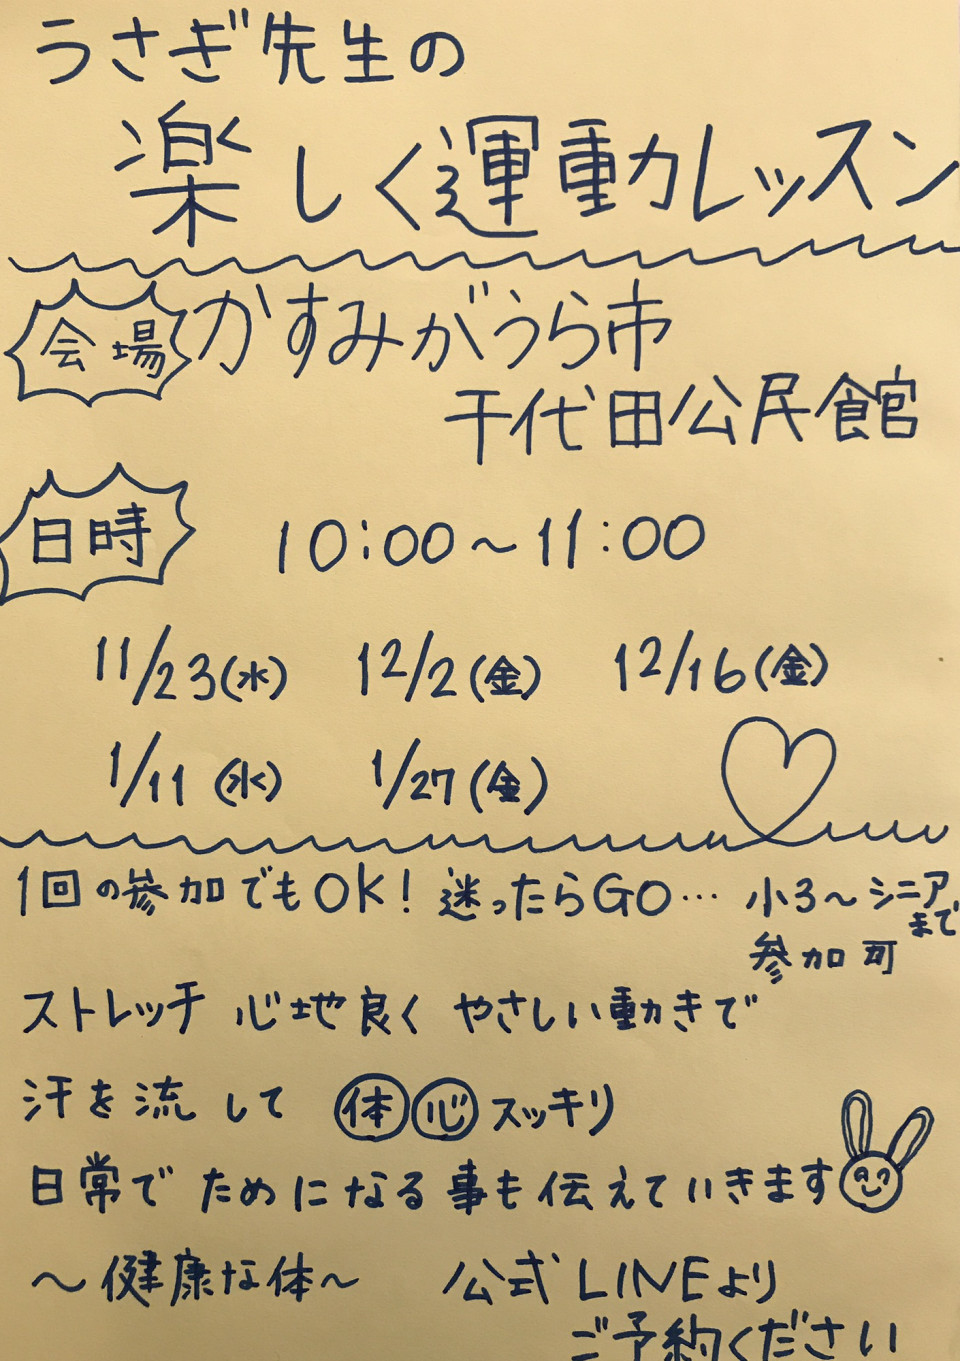 うさぎ先生の
楽しく運動レッスン
会場 かすみがうら市
千代田公民館
日時 10:00～11:00
11/23(水) 12/2(金) 12/16(金)
1/11(水) 1/27(金)
1回の参加でもOK! 迷ったらGO… 小3～シニアまで
参加可
ストレッチ 心地良く やさしい動きで
汗を流して 体 心 スッキリ
日常で ためになる事も伝えていきます
～健康な体～ 公式LINEより
ご予約ください